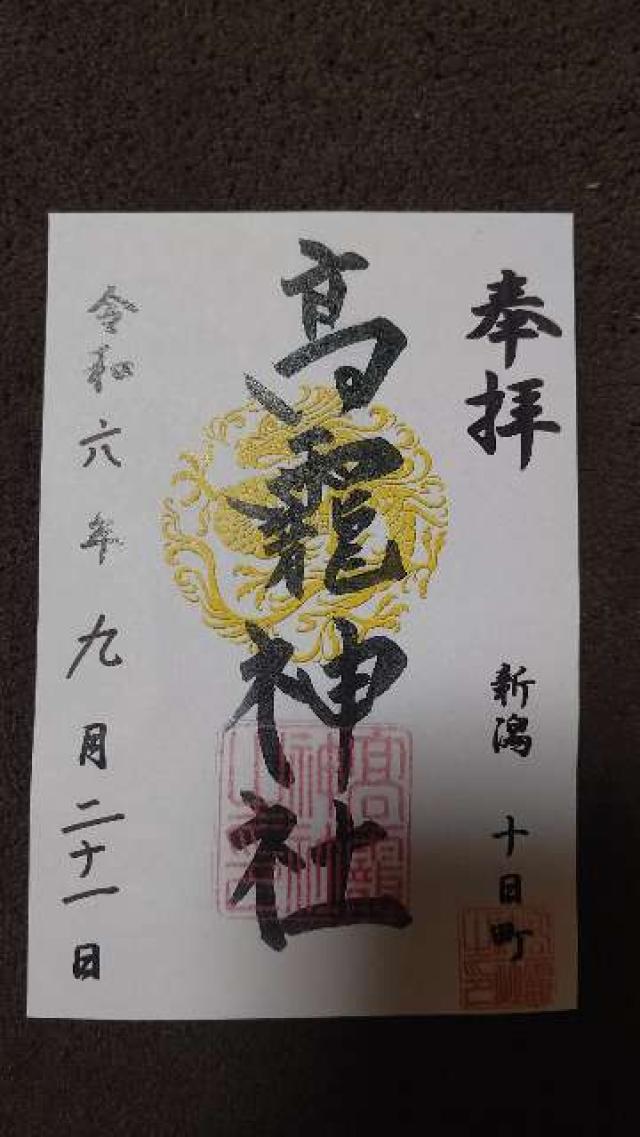 奉拝
新潟 十日町
高龗神社
令和六年九月二十一日